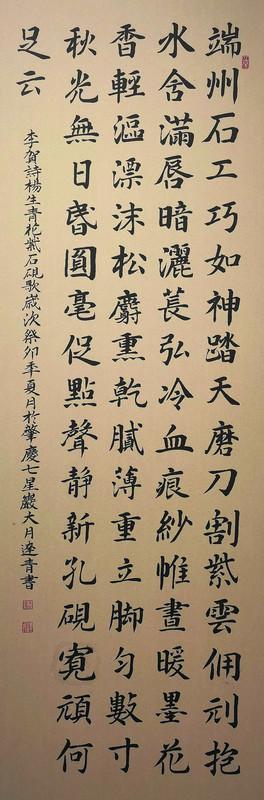 端州石工巧如神踏天磨刀割紫雲佣刓抱
水含滿唇暗灑萇弘冷血痕紗帷晝暖墨花
香輕漚漂沫松麝熏乾膩薄重立脚匀數寸
秋光無日昬圓毫促點聲静新孔硯寬頑何
足云
李賀詩楊生青花紫石硯歌歲次癸卯季夏月於肇慶七星巖大月青書